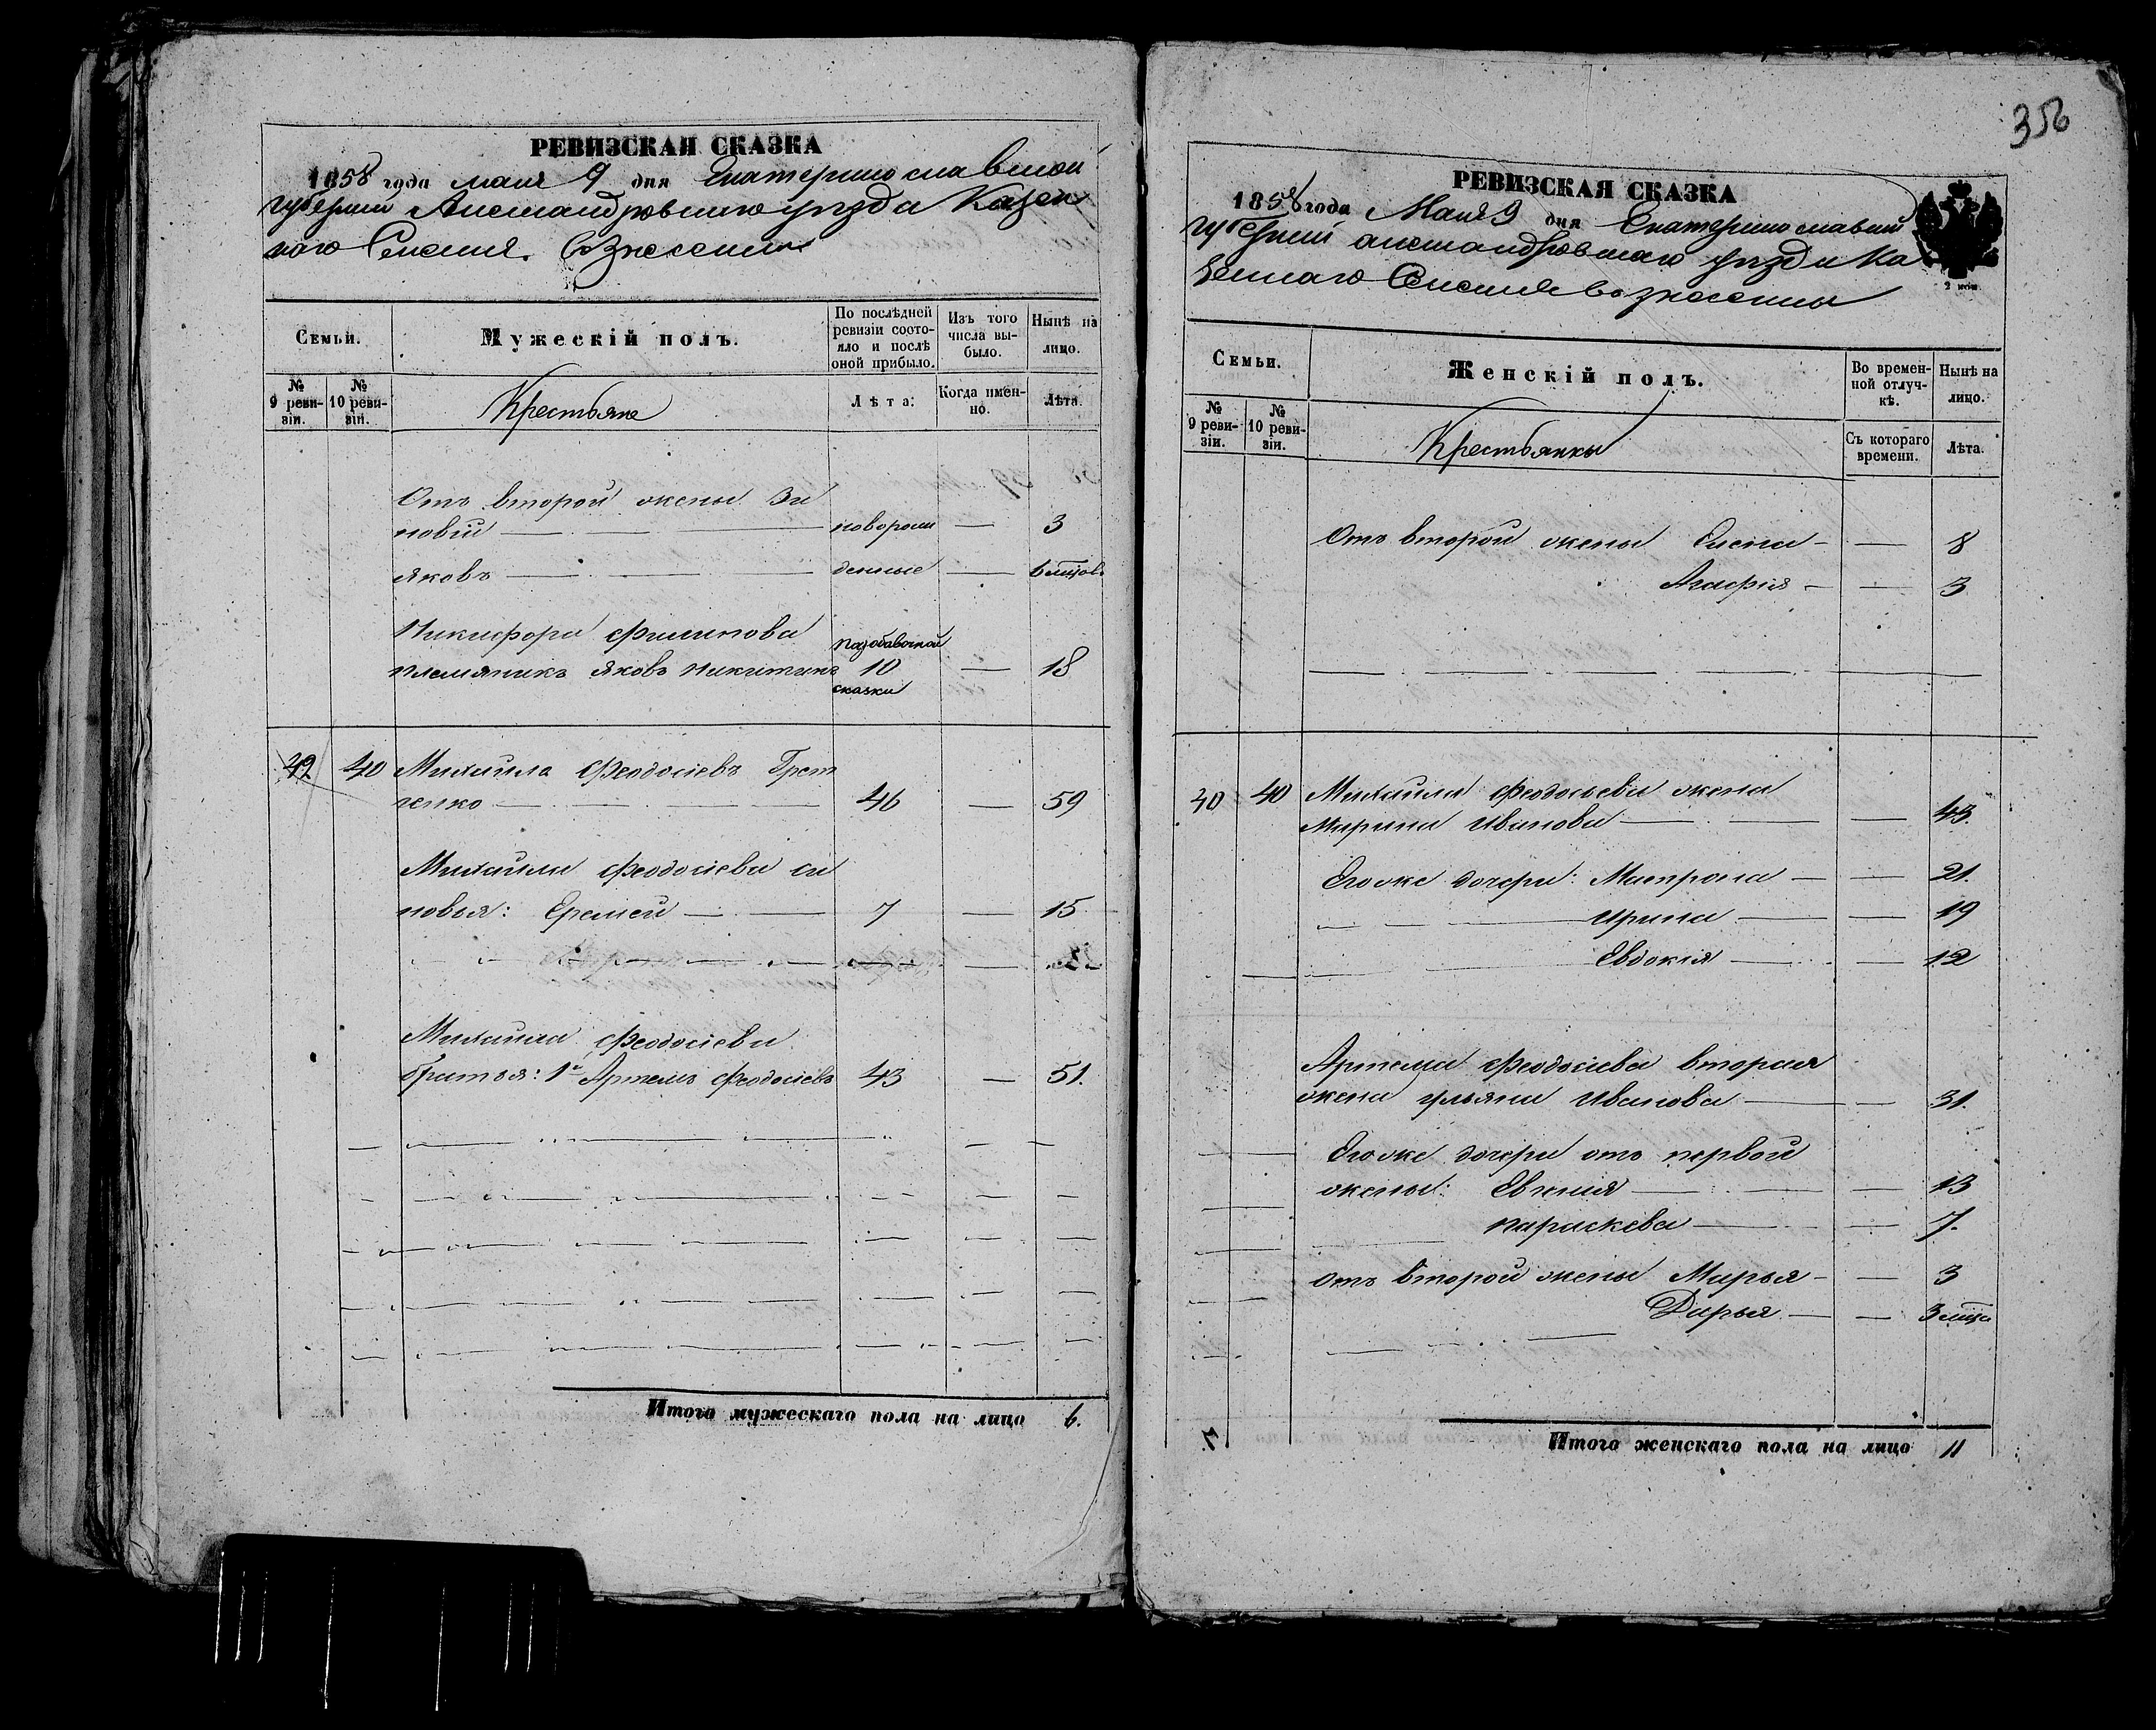 РЕВИЗСКАЯ СКАЗКА
1858 года мая 9 дня Екатеринославской
губерніи Александровскаго уѣзда Казен
наго Селенія Вознесенки
Семьи.
Мужескій полъ.
По послѣдней ревизіи состояло и послѣ оной прибыло.
Изъ того числа выбыло.
Нынѣ на лицо.
№ 9 ревизіи.
№ 10 ревизіи.
Крестьяне
Лѣта.
Когда именно.
Лѣта.
Отъ второй жены Зи
новій — новорож — 3
Яковъ — денные — 6 мѣсяцов
Никифора Филипова
племяникъ Яковъ Никитинъ
по добавочной
10 — 18
сказки
40 Михаила Феодосіевъ
ченко — 46 — 59
Михаила Феодосіева си
новья: Еремей — 7 — 15
Михаила Феодосіева
братья: 1й Артемъ Феодосіевъ 43 — 51.
Итого мужескаго пола на лицо 6.
356
РЕВИЗСКАЯ СКАЗКА
1858 года Мая 9 дня Екатеринославской
губерніи александровскаго уѣзда Ка
зеннаго Селенія вознесенки
Семьи.
Женскій полъ.
Во временной отлучкѣ.
Нынѣ на лицо.
№ 9 ревизіи.
№ 10 ревизіи.
Крестьянки
Съ котораго времени.
Лѣта.
Отъ второй жены Елена — — 8
Агафія — — 3
40 40 Михаила Феодосьева жена
Марина Иванова — — 43.
Егоже дочери: Матрона — — 21.
Ирина — — 19
Евдокія — — 12
Артема Феодосіева вторая
жена Ульяна Иванова — — 31.
Егоже дочери отъ первой
жены: Евгенія — — 13
Параскева — — 7.
отъ второй жены Марья — — 3
Дарья — — 3 мѣсяца
Итого женскаго пола на лицо 11